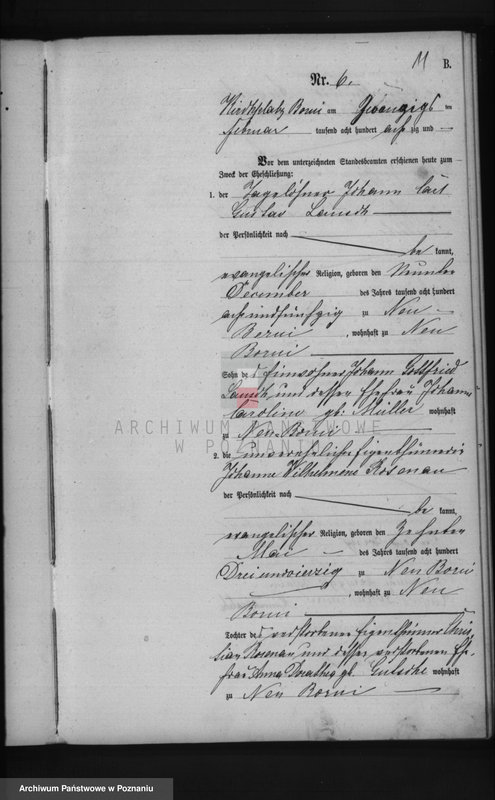 11 B.
Nr. 6.
Kirchplatz Borui am zwanzigs ten
Februar tausend acht hundert achtzig und —
Vor dem unterzeichneten Standesbeamten erschienen heute zum
Zweck der Eheschließung:
1. der Tagelöhner Johann Carl
Gustav
der Persönlichkeit nach
be kannt,
evangelischer Religion, geboren den Neunten
December des Jahres tausend acht hundert
achtundfünfzig zu Neu
Borui , wohnhaft zu Neu
Borui
Sohn des Einwohner Johann Gottfried
und dessen Ehefrau Johanne
Caroline gb. Müller wohnhaft
zu Neu Borui
2. die unverehelichte Eigenthümerin
Johanne Wilhelmine Rosenau
der Persönlichkeit nach
be kannt,
evangelischer Religion, geboren den Zehnten
Mai des Jahres tausend acht hundert
Dreiundvierzig zu Neu Borui
, wohnhaft zu Neu
Borui
Tochter des verstorbenen Eigenthümer Chris-
tian Rosenau und dessen verstorbenen Ehe-
frau Anna Dorothea gb. wohnhaft
zu Neu Borui
ARCHIWUM PAŃSTWOWE
W POZNANIU
Archiwum Państwowe w Poznaniu